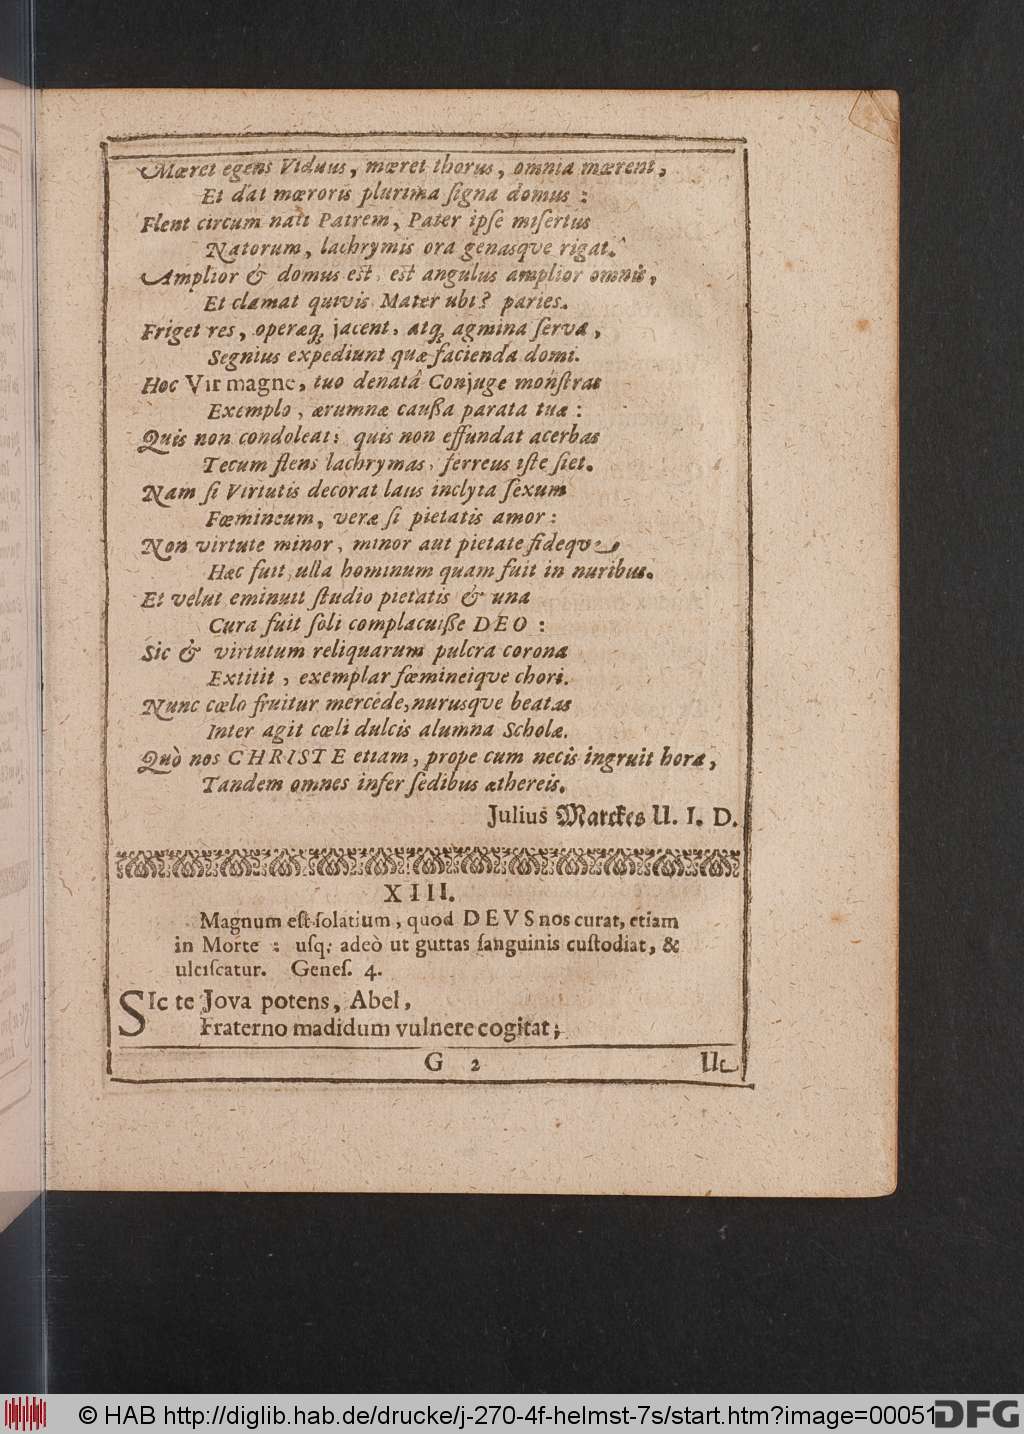 Mœret egens Viduus, mœret thorus, omnia mœrent,
Et dat mœroris plurima ſigna domus:
Flent circum nati Patrem, Pater ipſe miſertus
Natorum, lachrymis ora genasqve rigat.
Amplior & domus eſt, eſt angulus amplior omnis,
Et clamat quivis Mater ubi? paries.
Friget res, operæq; jacent, atq; agmina ſerva,
Segnius expediunt quæ facienda domi.
Hoc Vir magne, tuo denatâ Conjuge monſtras
Exemplo, ærumnæ cauſſa parata tuæ:
Quis non condoleat; quis non effundat acerbas
Tecum flens lachrymas, ferreus iſte ſiet.
Nam ſi Virtutis decorat laus inclyta ſexum
Fœmineum, veræ ſi pietatis amor:
Non virtute minor, minor aut pietate fideqve
Hæc fuit, ulla hominum quam fuit in nuribus.
Et velut eminuit ſtudio pietatis & una
Cura fuit ſoli complacuiſſe DEO:
Sic & virtutum reliquarum pulcra corona
Extitit, exemplar fœmineiqve chori.
Nunc cœlo fruitur mercede, nurusqve beatas
Inter agit cœli dulcis alumna Scholæ.
Quò nos CHRISTE etiam, prope cum necis ingruit hora,
Tandem omnes infer ſedibus æthereis.
Julius Marckes U. I. D.
XIII.
Magnum eſt ſolatium, quod DEVS nos curat, etiam
in Morte: uſq; adeò ut guttas ſanguinis cuſtodiat, &
ulciſcatur. Geneſ. 4.
SIc te Jova potens, Abel,
Fraterno madidum vulnere cogitat;
G 2
Ue
© HAB http://diglib.hab.de/drucke/j-270-4f-helmst-7s/start.htm?image=00051
DFG